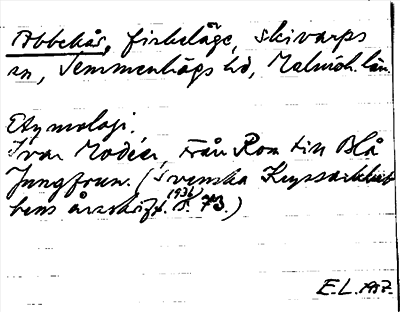 Abbekås, fiskeläge, Skivarps
sn, Vemmenhögs hd, Malmöh. län.
Etymologi.
Ivar Modéer, Från Ron till Blå
Jungfrun. (Svenska Kryssarklub
bens årsskrift 1936 s. 73.)
E.L. 1937.